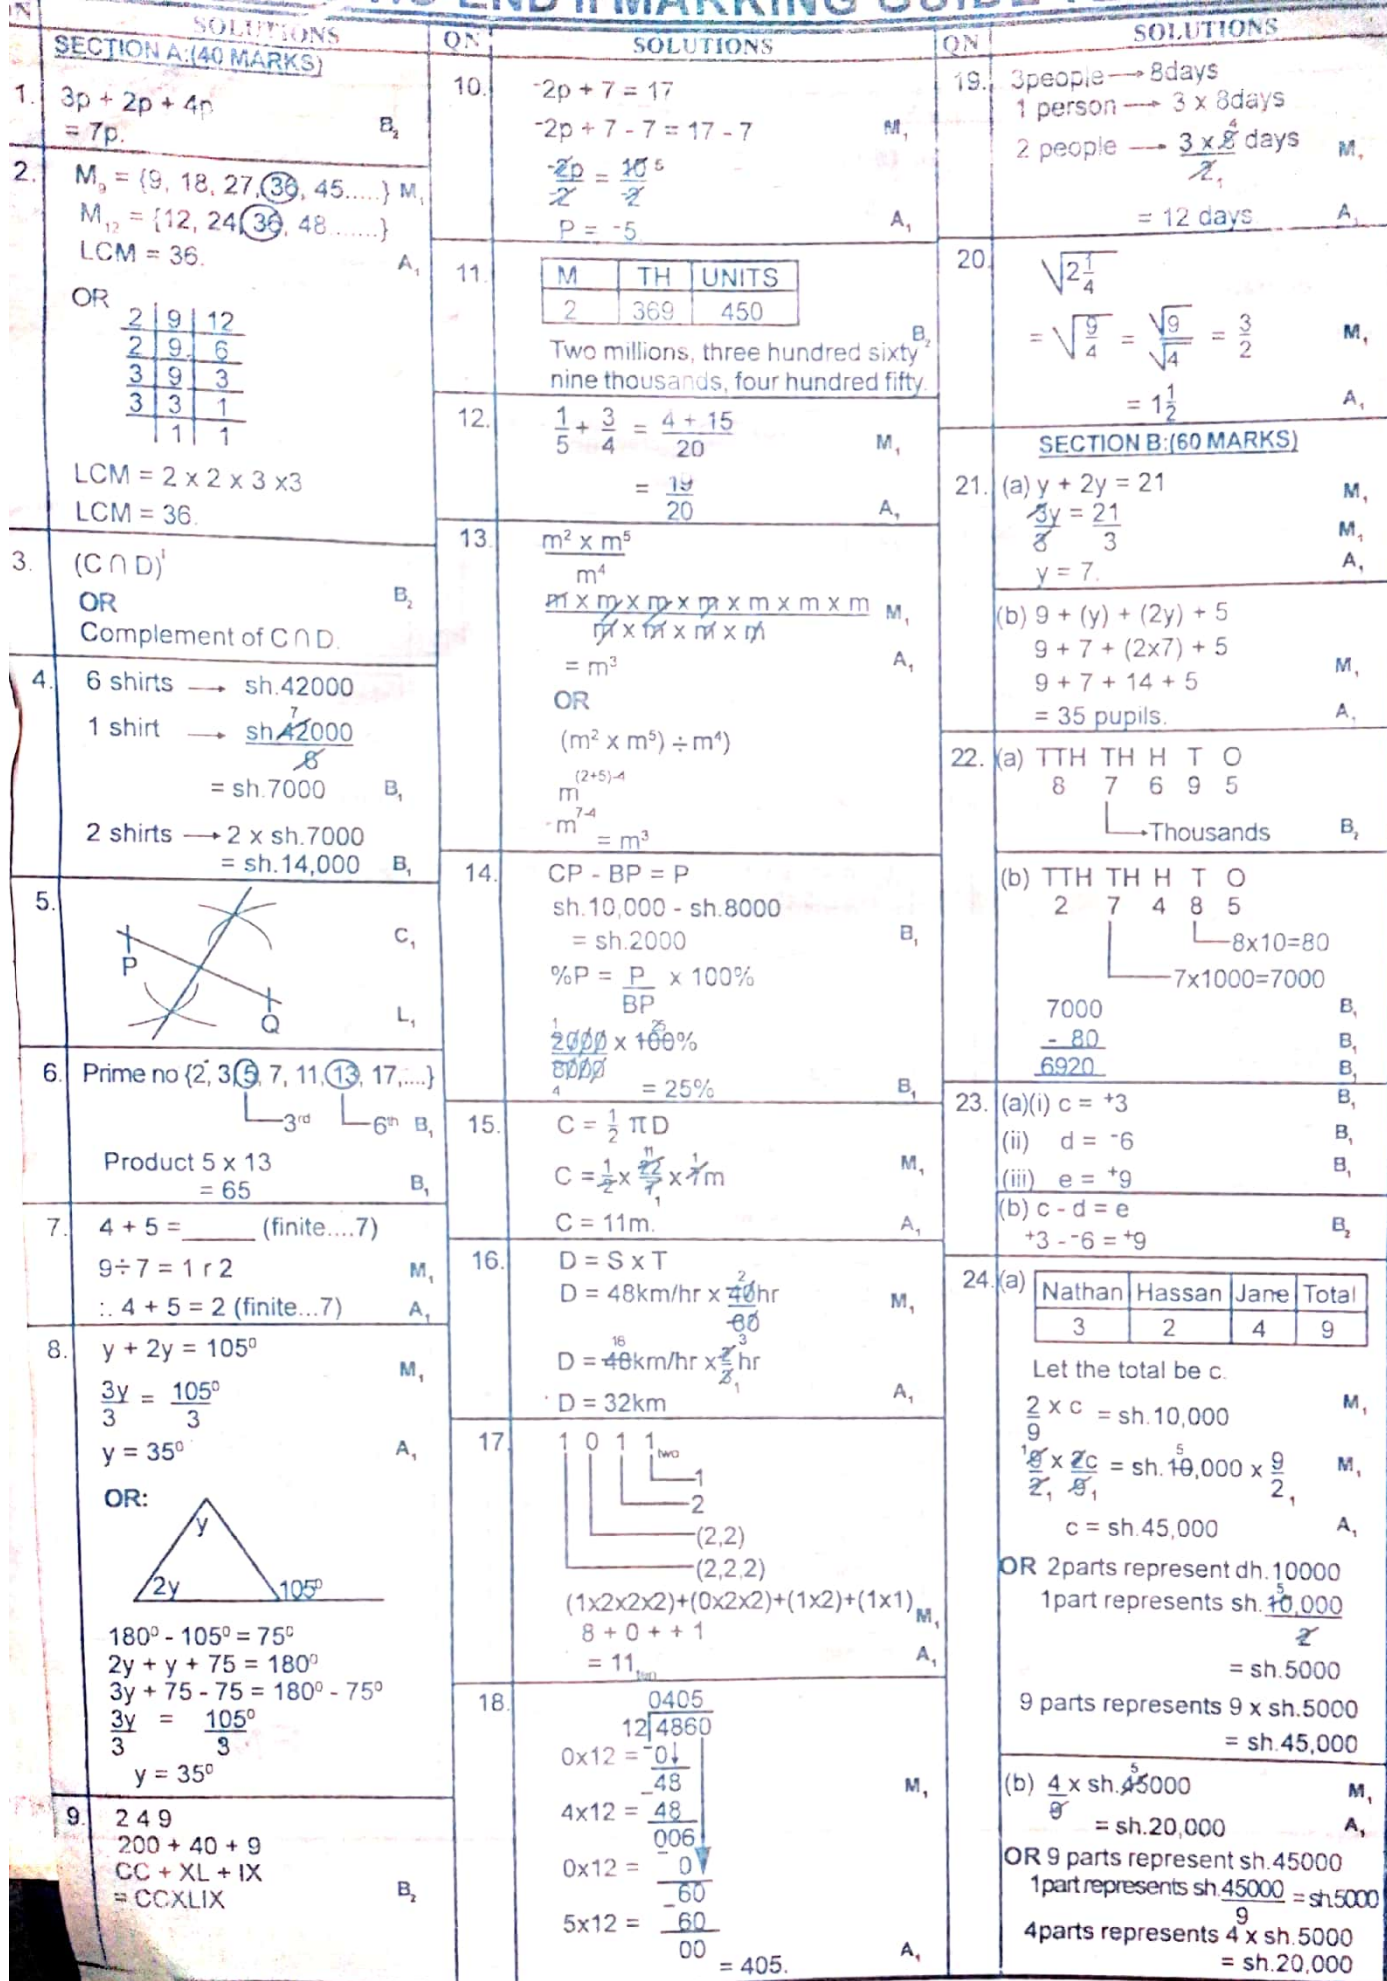 WS END II MARKING GUIDE
N
SOLUTIONS
SECTION A:(40 MARKS)
1. 3p + 2p + 4p
= 7p. B₂
2. M₉ = {9, 18, 27, 36, 45.....} M₁
M₁₂ = {12, 24, 36, 48.......}
LCM = 36. A₁
OR
2 | 9 | 12
2 | 9 | 6
3 | 9 | 3
3 | 3 | 1
| 1 | 1
LCM = 2 x 2 x 3 x3
LCM = 36.
3. (C ∩ D)ˡ
OR B₂
Complement of C ∩ D.
4. 6 shirts → sh.42000
1 shirt → sh.42000 7
6
= sh.7000 B₁
2 shirts → 2 x sh.7000
= sh.14,000 B₁
5.
C₁
P
Q
L₁
6. Prime no {2, 3, 5, 7, 11, 13, 17,....}
3rd 6th B₁
Product 5 x 13
= 65 B₁
7. 4 + 5 = _____ (finite....7)
9÷7 = 1 r 2 M₁
∴ 4 + 5 = 2 (finite...7) A₁
8. y + 2y = 105⁰
M₁
3y/3 = 105⁰/3
y = 35⁰ A₁
OR:
y
2y 105⁰
180⁰ - 105⁰ = 75⁰
2y + y + 75 = 180⁰
3y + 75 - 75 = 180⁰ - 75⁰
3y/3 = 105⁰/3
y = 35⁰
9. 2 4 9
200 + 40 + 9
CC + XL + IX
= CCXLIX B₂
QN
SOLUTIONS
10. ⁻2p + 7 = 17
⁻2p + 7 - 7 = 17 - 7 M₁
⁻2p/⁻2 = 10/⁻2 5
P = ⁻5 A₁
11. M | TH | UNITS
2 | 369 | 450
B₂
Two millions, three hundred sixty
nine thousands, four hundred fifty.
12. 1/5 + 3/4 = 4 + 15/20 M₁
= 19/20 A₁
13. m² x m⁵
m⁴
m x m x m x m x m x m x m M₁
m x m x m x m
= m³ A₁
OR
(m² x m⁵) ÷ m⁴)
m⁽²⁺⁵⁾⁻⁴
m⁷⁻⁴
= m³
14. CP - BP = P
sh.10,000 - sh.8000
= sh.2000 B₁
%P = P/BP x 100%
1 25
2000 x 100%
8000
4 = 25% B₁
15. C = ½ πD
C = 1/2 x 22/7 x 7m M₁
C = 11m. A₁
16. D = S x T
D = 48km/hr x 40/60 hr M₁
D = 48km/hr x 2/3 hr
D = 32km A₁
17. 1 0 1 1 two
1
2
(2,2)
(2,2,2)
(1x2x2x2)+(0x2x2)+(1x2)+(1x1) M₁
8 + 0 + + 1
= 11 ten A₁
18. 0405
12 4860
0x12 = -0
48
4x12 = 48 M₁
006
0x12 = 0
60
5x12 = 60
00
= 405. A₁
QN
SOLUTIONS
19. 3people → 8days
1 person → 3 x 8days
2 people → 3 x 8 days M₁
2
= 12 days A₁
20. √2¼
= √9/4 = √9/√4 = 3/2 M₁
= 1½ A₁
SECTION B:(60 MARKS)
21. (a) y + 2y = 21 M₁
3y/3 = 21/3 M₁
y = 7. A₁
(b) 9 + (y) + (2y) + 5
9 + 7 + (2x7) + 5
9 + 7 + 14 + 5 M₁
= 35 pupils. A₁
22. (a) TTH TH H T O
8 7 6 9 5
Thousands B₂
(b) TTH TH H T O
2 7 4 8 5
8x10=80
7x1000=7000
7000 B₁
- 80 B₁
6920 B₁
23. (a)(i) c = ⁺3 B₁
(ii) d = ⁻6 B₁
(iii) e = ⁺9 B₁
(b) c - d = e
⁺3 - ⁻6 = ⁺9 B₂
24. (a) Nathan | Hassan | Jane | Total
3 | 2 | 4 | 9
Let the total be c.
2/9 x c = sh.10,000 M₁
9/2 x 2c/9 = sh.10,000 x 9/2 M₁
c = sh.45,000 A₁
OR 2parts represent dh.10000
1part represents sh.10,000
2
= sh.5000
9 parts represents 9 x sh.5000
= sh.45,000
(b) 4/9 x sh.45000 M₁
= sh.20,000 A₁
OR 9 parts represent sh.45000
1part represents sh.45000/9 = sh.5000
4parts represents 4 x sh.5000
= sh.20,000